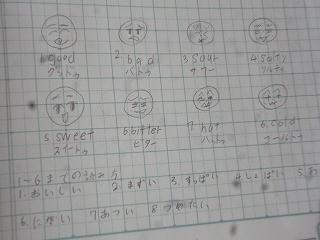 1.good 2.bad 3.sour 4.salty
グッド バッド サワー ソルティ
5.sweet 6.bitter 7.hot 8.cold
スイート ビター ハット コールド
1~6までの
1.おいしい 2.まずい 3.すっぱい 4.しょぱい 5.あ
6.にがい 7.あつい 8.つめたい